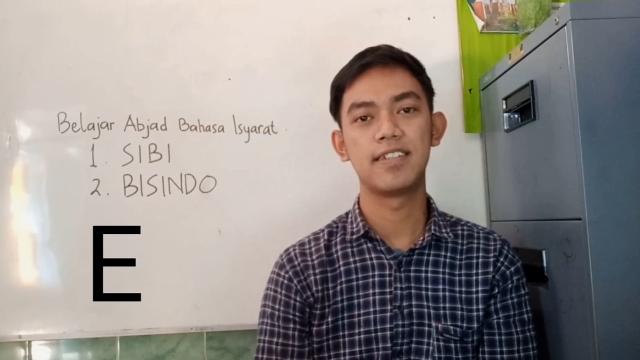 Belajar Abjad Bahasa Isyarat
1. SIBI
2. BISINDO
E